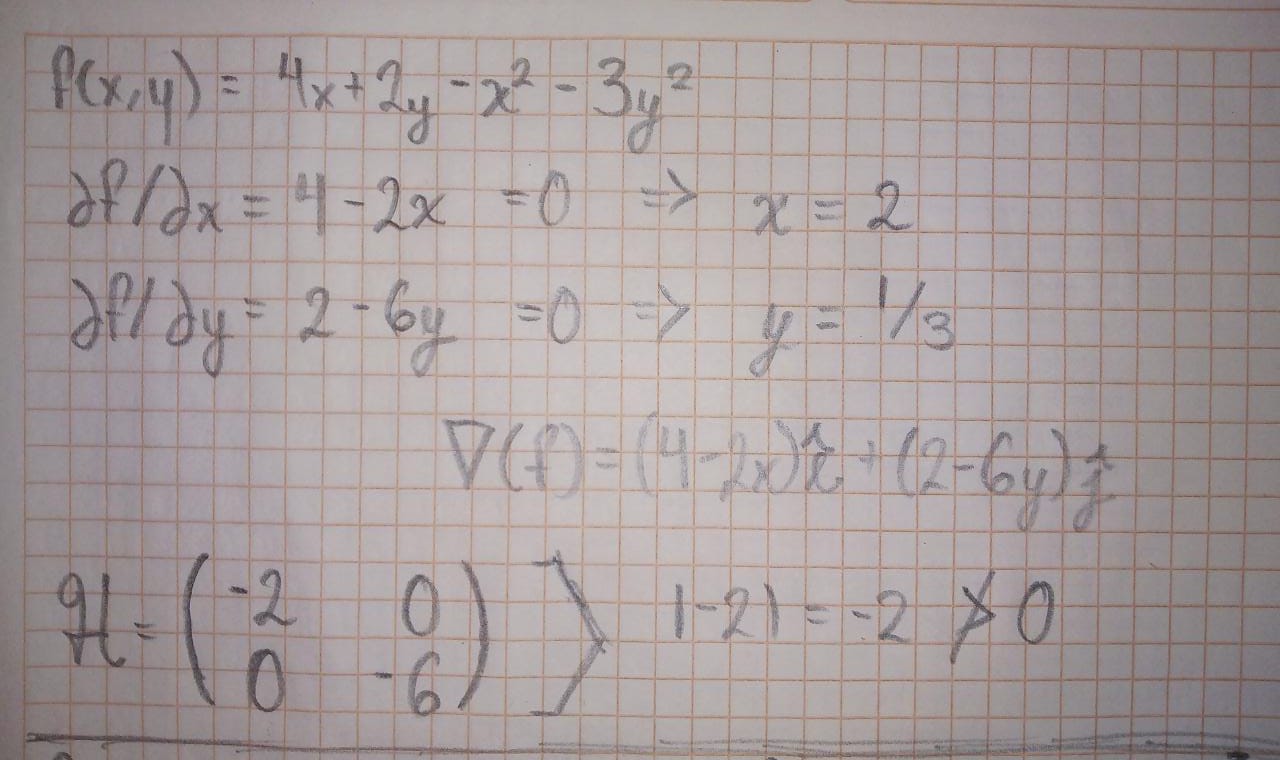 f(x,y) = 4x+2y-x²-3y²
∂f/∂x = 4-2x =0 => x = 2
∂f/∂y = 2-6y =0 => y = 1/3
∇(f) = (4-2x)î + (2-6y)ĵ
H = (-2 0 0 -6) > |-2| = -2 ≯ 0